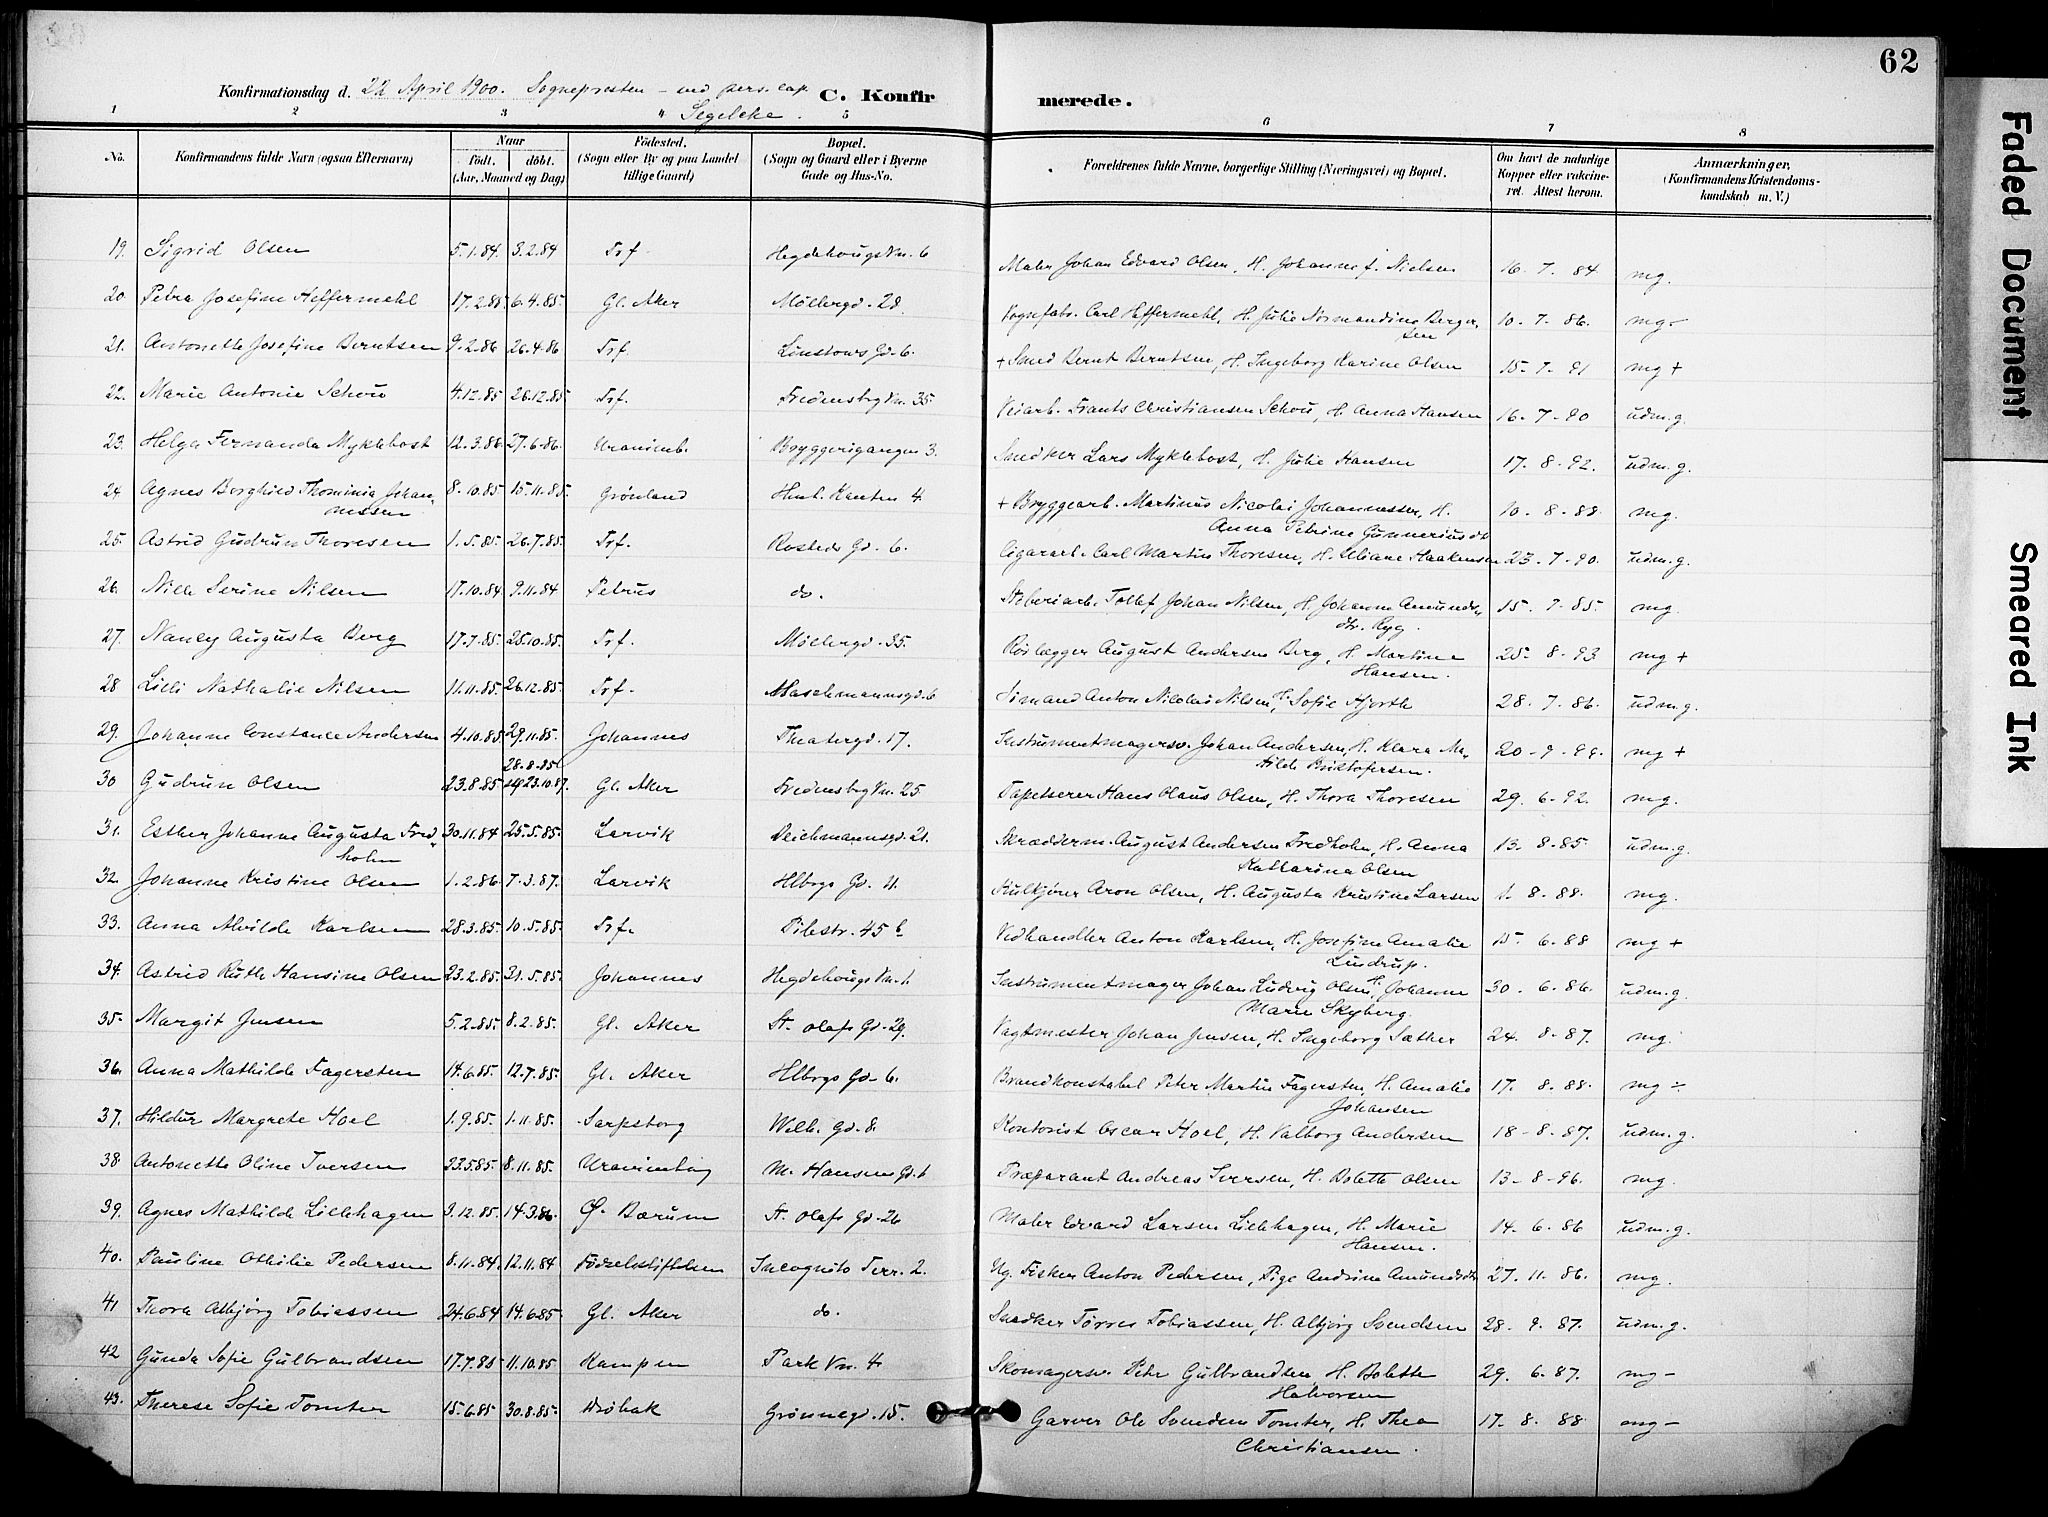 62
Konfirmationsdag d. 22 April 1900. Sognepresten - ved pers. cap. C. Konfirmerede.
" Segelcke.
1 2 3 5 6 7 8
No. Konfirmandens fulde Navn (ogsaa Efternavn) Naar födt. döbt. (Aar, Maaned og Dag) Födested. (Sogn eller By og paa Landet tillige Gaard) Bopæl. (Sogn og Gaard eller i Byerne Gade og Hus-No. Forældrenes fulde Navne, borgerlige Stilling (Næringsvei) og Bopæl. Om havt de naturlige Kopper eller vakcineret. Attest herom. Anmærkninger, (Konfirmandens Kristendomskundskab m. V.)
19. Sigrid Olsen 5.1.84. 3.2.84 Trf. Hegdehougsvn. 6 Maler Johan Edvard Olsen, H. Johanne f. Nielsen 16. 7. 84. mg.
20. Petra Josefine Heffermehl 17.2.85 6.4.85. Gl. Aker Møllergd. 28. Vognfabr. Carl Heffermehl, H. Julie Normandine Bergersen 10. 7. 86. mg-
21. Antonette Josefine Berntsen 9.2.86 26.4.86 Trf. Linstows Gd. 6. + Smed Bernt Berntsen, H. Ingeborg Karine Olsen 15. 7. 91 mg +
22. Marie Antonie Schou 4.12.85 26.12.85 Trf. Fredensbrgvn. 35. Veiarb. Frants Christiansen Schou, H. Anna Hansen 16. 7. 90 udm.g.
23. Helga Fernanda Myklebost 12.3.86. 27.6.86. Uranienb. Bryggerigangen 3. Snedker Lars Myklebost, H. Julie Hansen 17. 8. 92. udm.g.
24. Agnes Borghild Thominia Johannessen 8.10.85 15.11.85. Grønland Hmb. Kanten 4. + Bryggearb. Martinus Nicolai Johannessen, H. Anna Petrine Gunneriusdt 10. 8. 88. mg.
25. Astrid Gudrun Thoresen 1.5.85. 26.7.85. Trf. Rosteds Gd. 6. Cigararb. Carl Martin Thoresen, H. Eliane Haakensen 23. 7. 90. udm.g.
26. Nille Serine Nilsen 17.10.84 9.11.84 Petrus do. Støberiarb. Tollef Johan Nilsen, H. Johanne Amundsdtr. Ryg. 15. 7. 85. mg.
27. Nancy Augusta Berg 17.7.85. 25.10.85. Trf. Møllergd. 35. Rørlægger August Andersen Berg, H. Martine Hansen. 25. 8. 93. mg +
28 Lilli Nathalie Nilsen 11.11.85. 26.12.85. Trf. Maschmannsgd. 6 Sømand Anton Nicolai Nilsen, H. Sofie Hjorth 28. 7. 86. udm.g.
29. Johanne Constance Andersen 4.10.85. 29.11.85. Johannes Theatergd. 17. Instrumentmagersv. Johan Andersen, H. Klara Mathilde Kristofersen. 20. 9. 99. mg +
30 Gudrun Olsen 23.8.85. 28.8.85 23.10.87. Gl. Aker Fredensbrgvn. 25. Tapetserer Hans Olaus Olsen, H. Thora Thoresen 29. 6. 92. mg.
31. Esther Johanne Augusta Fredholm 30.11.84 25.5.85. Larvik Deichmannsgd. 21. Skrædderm. August Andersen Fredholm, H. Anna Katharina Olsen 13. 8. 85. udm.g.
32. Johanne Kristine Olsen 1.2.86. 7.3.87. Larvik Hlbrgs Gd. 11. Kulkjører Aron Olsen, H. Augusta Kristine Larsen 1. 8. 88. mg.
33. Anna Alvilde Karlsen 28.3.85. 10.5.85. Trf. Pilestr. 45 b Vedhandler Anton Karlsen, H. Josefine Amalie Lindrup. 15. 6. 88 mg +
34. Astrid Ruth Hansine Olsen 23.2.85. 31.5.85. Johannes Hegdehougsvn. 1. Instrumentmager Johan Ludvig Olsen, H. Johanne Marie Skyberg. 30. 6. 86. udm.g.
35. Margit Jensen 5.2.85. 8.2.85. Gl. Aker St. Olafs Gd. 29. Vagtmester Johan Jensen, H. Ingeborg Sæther 24. 8. 87. mg.
36. Anna Mathilde Fagersten 14.6.85. 12.7.85. Gl. Aker Hlbrgs Gd. 6. Brandkonstabel Peter Martin Fagersten, H. Amalie Johansen 17. 8. 88. mg ÷
37. Hildur Margrete Hoel 1.9.85. 1.11.85. Sarpsborg Welh. Gd. 8. Kontorist Oscar Hoel, H. Valborg Andersen 18. 8. 87. udm.g.
38 Antonette Oline Iversen 23.5.85. 8.11.85. Uranienborg M. Hansens Gd. 1 Præparant Andreas Iversen, H. Bolette Olsen 13. 8. 96. mg.
39. Agnes Mathilde Lillehagen 3.12.85. 14.3.86. Ø. Bærum St. Olafs Gd. 26 Maler Edvard Larsen Lillehagen, H. Marie Hansen. 14. 6. 86 udm.g.
40. Pauline Othilie Pedersen 8.11.84. 12.11.84 Fødselsstiftelsen Incognito Terr. 2. Ug. Fisker Anton Pedersen, Pige Andrine Amundsdtr 27. 11. 86. mg.
41 Thora Asbjørg Tobiassen 24.6.84 14.6.85 Gl. Aker do. Snedker Tørres Tobiassen, H. Asbjørg Svendsen 28. 9. 87. udm.g.
42 Gunda Sofie Gulbrandsen 17.7.85 11.10.85 Kampen Park Vn. 4. Skomagersv. Peter Gulbrandsen, H. Bolette Halvorsen 29. 6. 87. mg -
43. Therese Sofie Tomter 15.6.85 30.8.85. Drøbak Grønnegd. 15. Garver Ole Svendsen Tomter, H. Thea Christiansen. 17. 8. 88 mg -
Faded Document
Smeared Ink